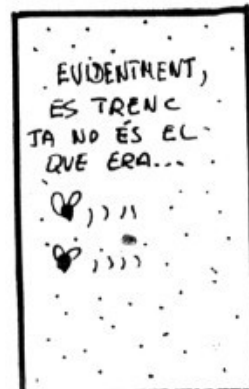 EVIDENTMENT,
ES TRENC
JA NO ÉS EL
QUE ERA...